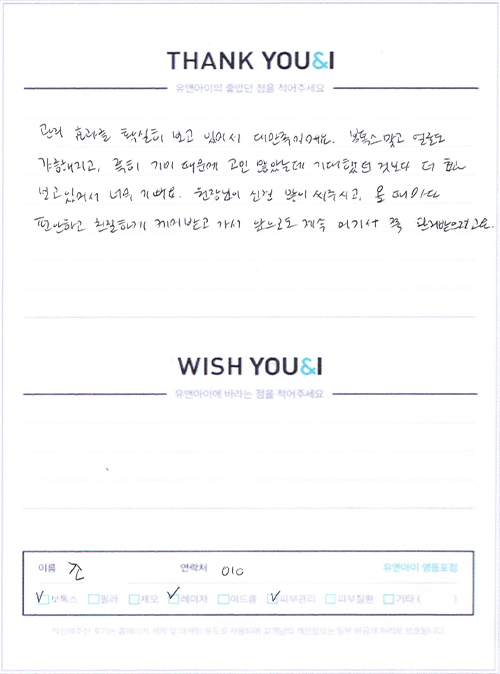 THANK YOU&I
유앤아이의 좋았던 점을 적어주세요
관리 효과를 확실히 보고 있어서 대만족이에요. 보톡스맞고 얼굴도
갸름해지고, 특히 기미 때문에 고민 많았는데 기대했던 것보다 더 효과
보고있어서 너무 기뻐요. 원장님이 신경 많이 써주시고, 올 때마다
편안하고 친절하게 케어받고 가서 앞으로도 계속 여기서 쭉 관리받으려고요.
WISH YOU&I
유앤아이에 바라는 점을 적어주세요
이름 조 연락처 010 유앤아이 영등포점
보톡스 필러 제모 레이저 여드름 피부관리 피부질환 기타 ( )
작성해주신 후기는 홈페이지 게재 및 마케팅 용도로 사용되며 고객님의 개인정보는 일부 비공개 처리로 보호됩니다